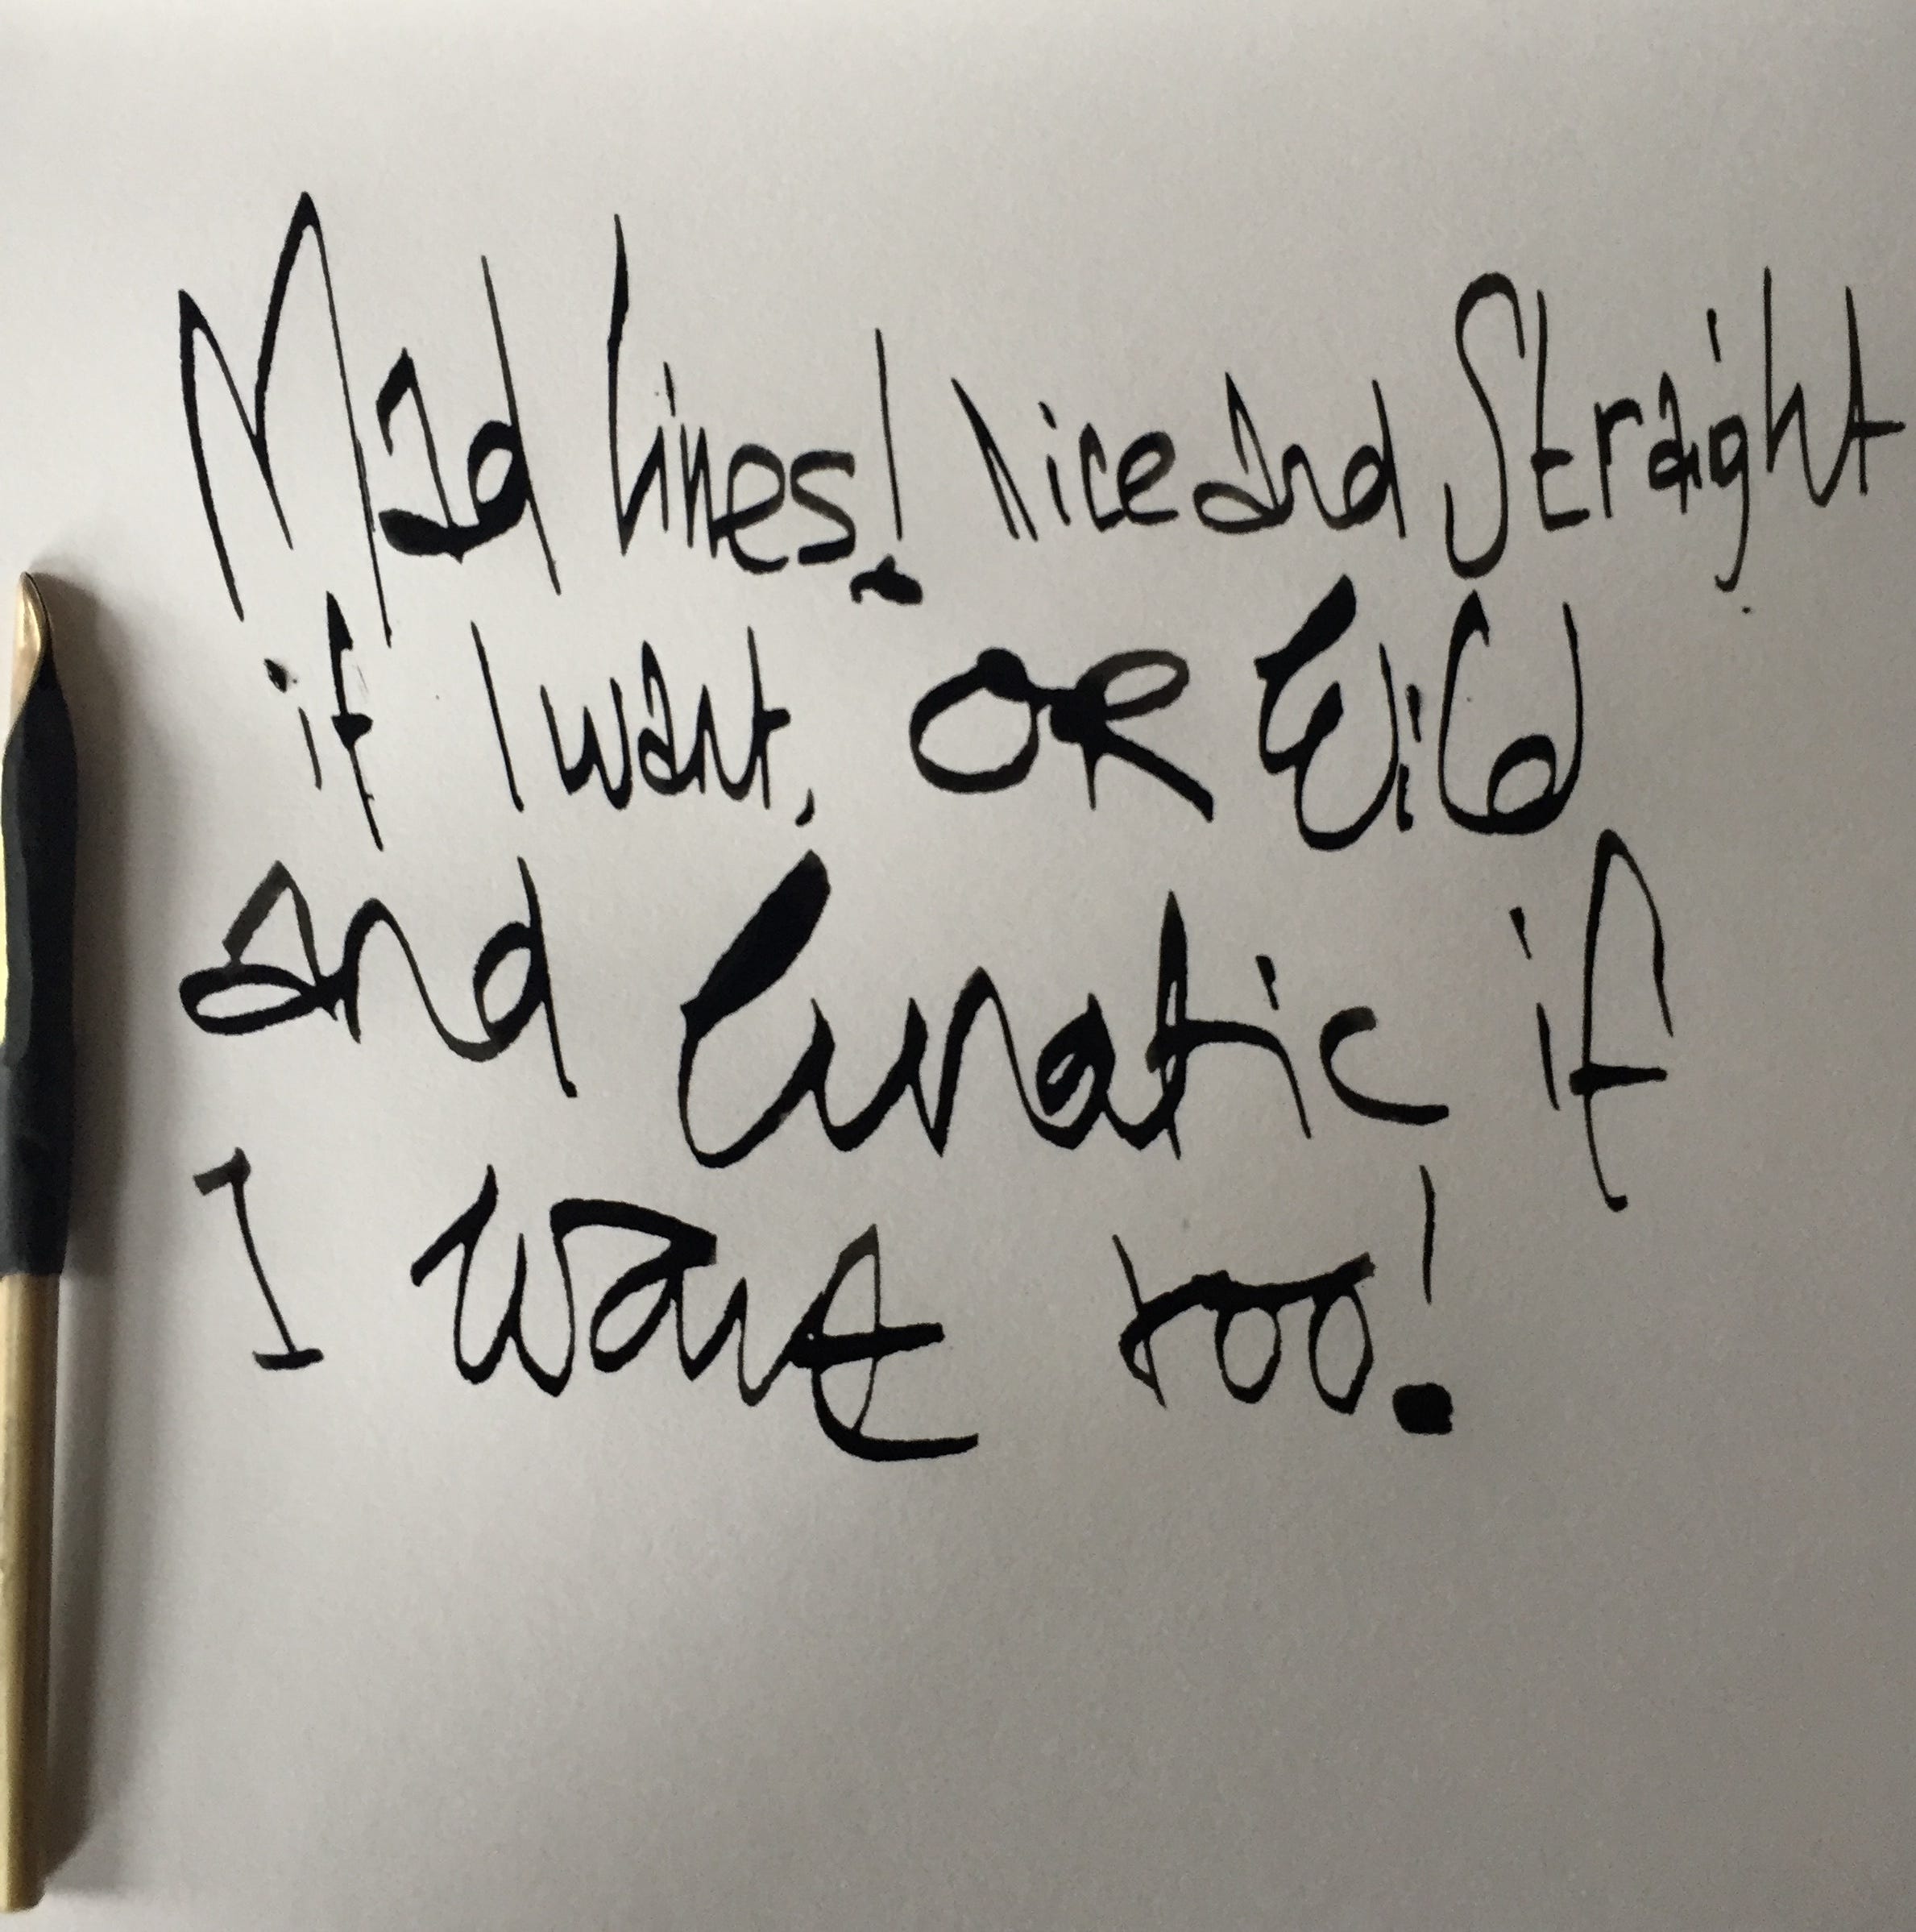 Mad lines! nice and Straight
if I want, OR Wild
and lunatic if
I want too!